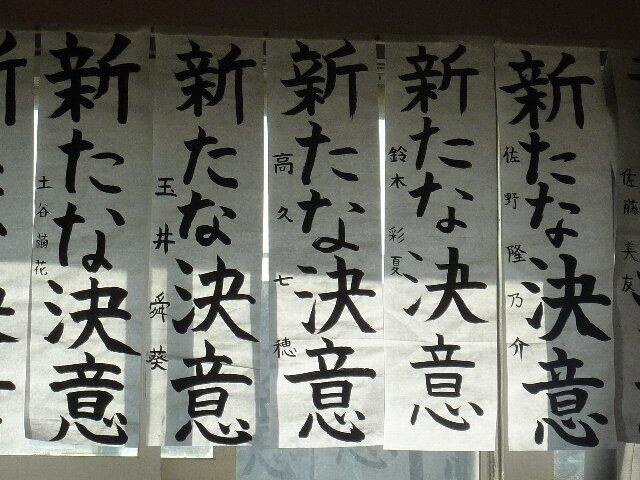 佐藤美友
新たな決意
佐野隆乃介
新たな決意
鈴木彩夏
新たな決意
高久七穂
新たな決意
玉井舜葵
新たな決意
土谷繭花
新